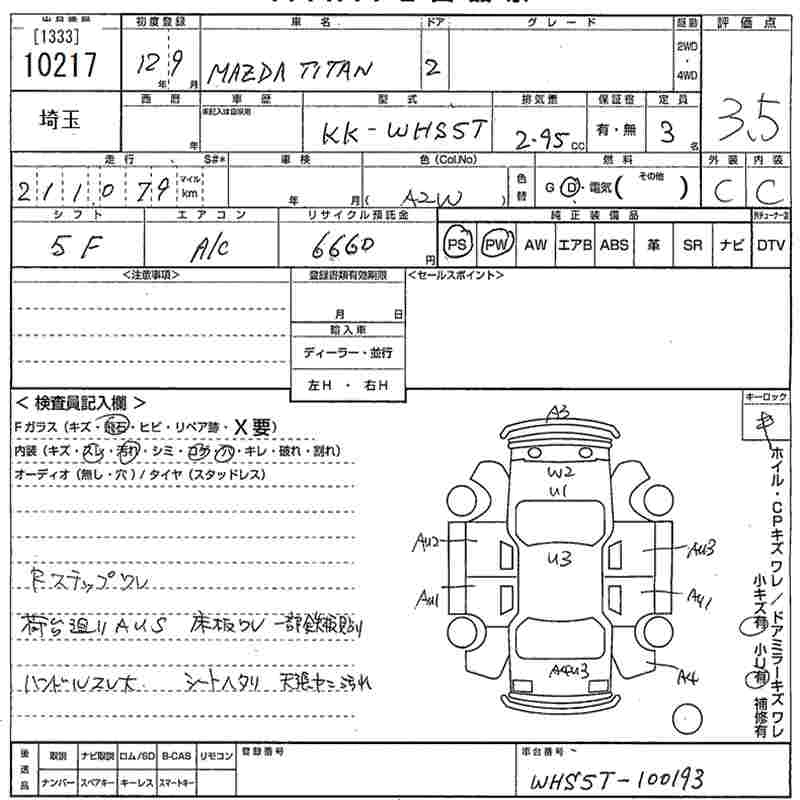 [1333]
10217
初度登録 車名 ドア グレード 駆動 評価点
12年 9月 MAZDA TITAN 2 2WD・4WD 3.5
埼玉
西暦 車歴 型式 排気量 保証書 定員
未記入は自家用
年 KK-WHS5T 2.95cc 有・無 3名
走行 S#* 車検 色(Col.No) 色替 燃料 外装 内装
211079 マイル km 年 月 ( A2W ) G D・電気( その他 ) C C
シフト エアコン リサイクル預託金 純正装備品
5F A/C 6660円 PS PW AW エアB ABS 革 SR ナビ DTV
<注意事項> 登録書類有効期限 <セールスポイント>
月 日
輸入車
ディーラー・並行
左H ・ 右H
< 検査員記入欄 > キーロック
Fガラス(キズ・飛石・ヒビ・リペア跡・X要)
内装(キズ・スレ・汚れ・シミ・コゲ・穴・キレ・破れ・割れ)
オーディオ(無し・穴)/タイヤ(スタッドレス)
A3
W2
U1
AU2 U3 AU3
AU1 AU1
A4U3 A4
ホイル・CPキズ ワレ/ドアミラーキズ ワレ
小キズ有 小U有 補修有
Rステップワレ
荷台廻りAUS 床板ワレ 一部鉄板貼り
ハンドルスレ大 シートヘタリ 天張ヤニ汚れ
後送品 取説 ナビ取説 ロム/SD B-CAS リモコン 登録番号 車台番号
ナンバー スペアキー キーレス スマートキー WHS5T-100193